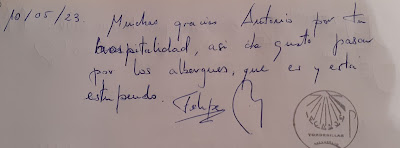 10/05/23. Muchas gracias Antonio por tu
hospitalidad, asi da gusto pasar
por los albergues, que es y está
estupendo. Felipe
TOSANTOS